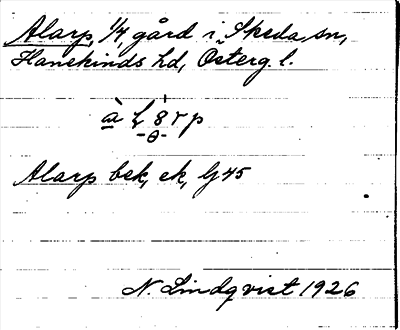 Alarp, 1/4, gård i Skeda sn,
Hanekinds hd, Österg. l.
Alarp bek, ek, Gj 45
N. Lindqvist 1926